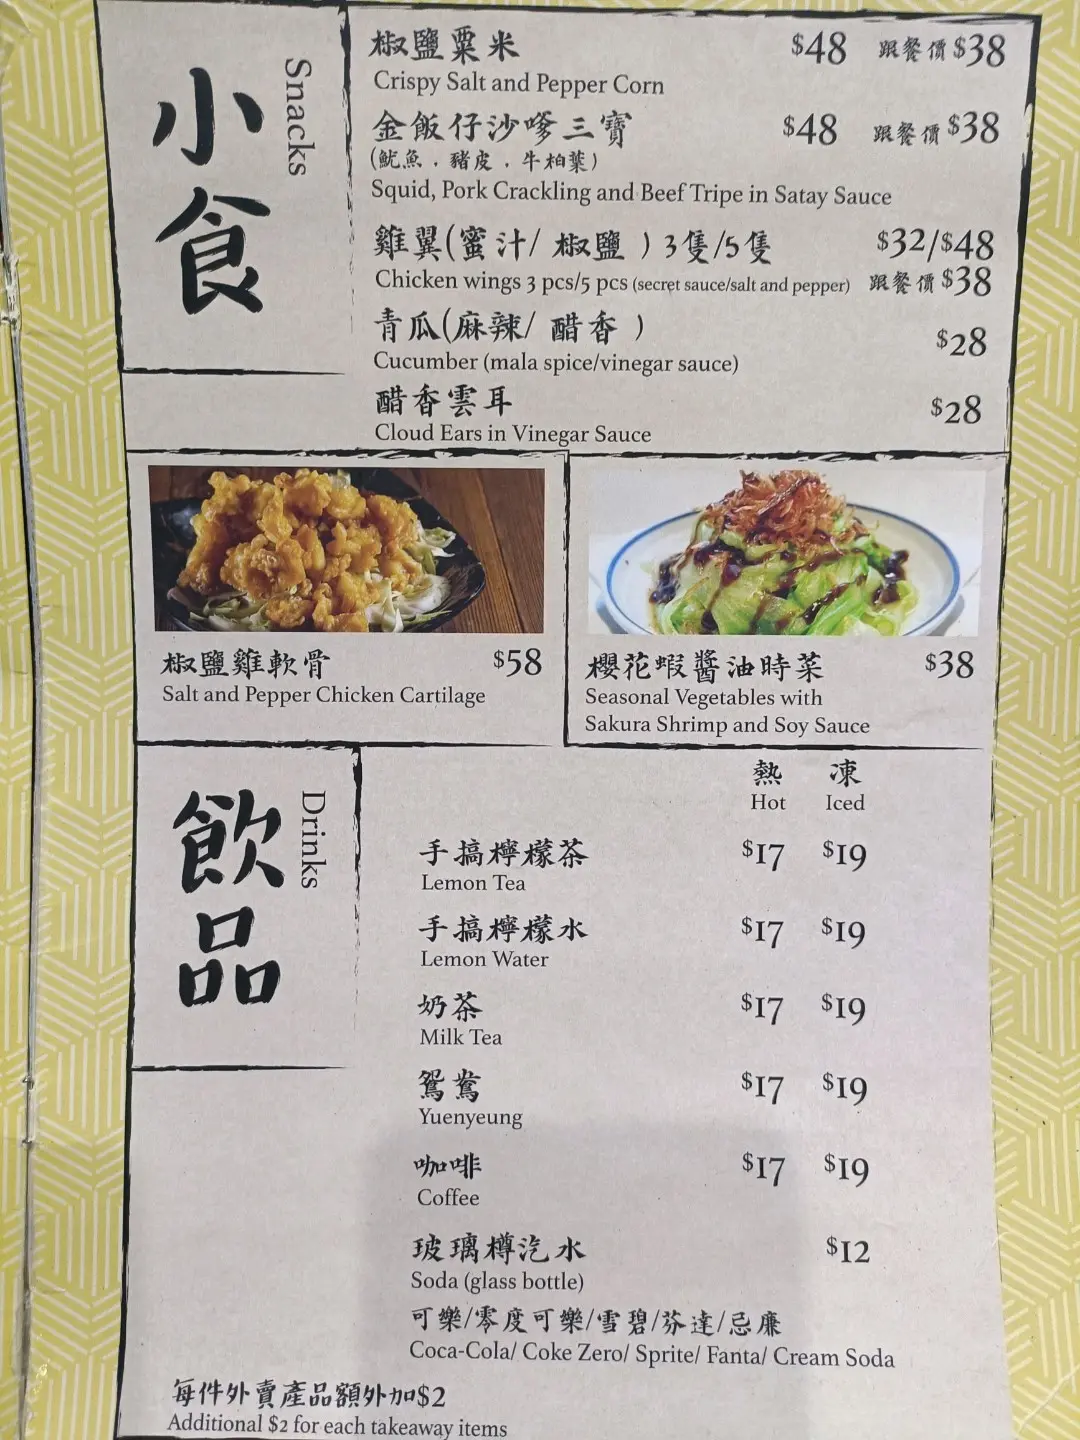 小食
Snacks
椒鹽粟米 $48 跟餐價$38
Crispy Salt and Pepper Corn
金飯仔沙嗲三寶 $48 跟餐價$38
(魷魚，豬皮，牛柏葉)
Squid, Pork Crackling and Beef Tripe in Satay Sauce
雞翼(蜜汁/ 椒鹽 ) 3隻/5隻 $32/$48
Chicken wings 3 pcs/5 pcs (secret sauce/salt and pepper) 跟餐價$38
青瓜(麻辣/ 醋香 ) $28
Cucumber (mala spice/vinegar sauce)
醋香雲耳 $28
Cloud Ears in Vinegar Sauce
椒鹽雞軟骨 $58
Salt and Pepper Chicken Cartilage
櫻花蝦醬油時菜 $38
Seasonal Vegetables with
Sakura Shrimp and Soy Sauce
飲品
Drinks
熱 凍
Hot Iced
手搞檸檬茶 $17 $19
Lemon Tea
手搞檸檬水 $17 $19
Lemon Water
奶茶 $17 $19
Milk Tea
鴛鴦 $17 $19
Yuenyeung
咖啡 $17 $19
Coffee
玻璃樽汽水 $12
Soda (glass bottle)
可樂/零度可樂/雪碧/芬達/忌廉
Coca-Cola/ Coke Zero/ Sprite/ Fanta/ Cream Soda
每件外賣產品額外加$2
Additional $2 for each takeaway items